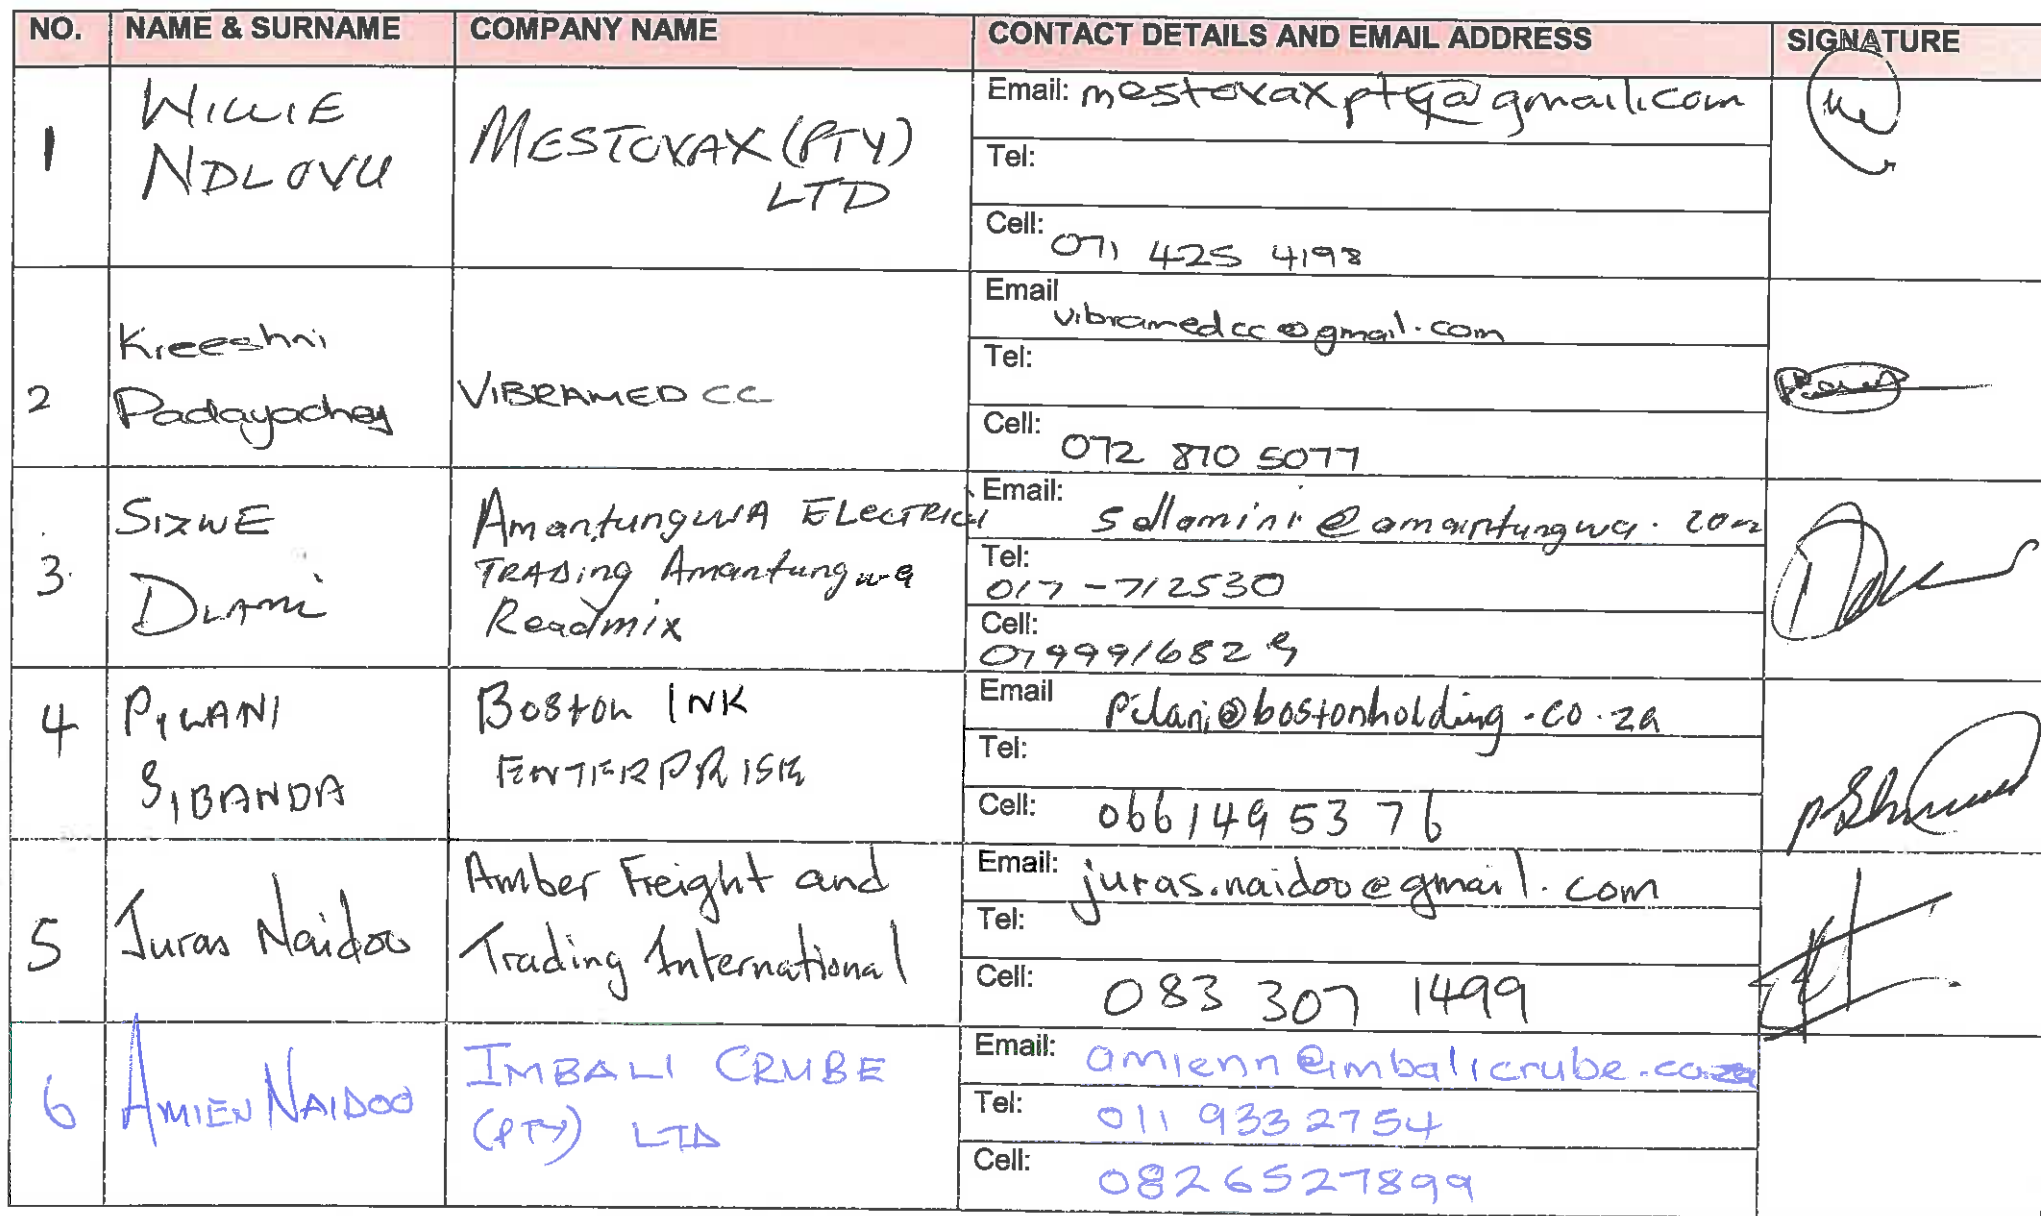 NO. NAME & SURNAME COMPANY NAME CONTACT DETAILS AND EMAIL ADDRESS SIGNATURE
1
WILLIE
NDLOVU
MESTOVAX (PTY)
LTD
Email: mestovaxpty@gmail.com
Tel:
Cell: 071 425 4198
2
Kreeshni
Padayachey
VIBRAMED CC
Email vibramedcc@gmail.com
Tel:
Cell: 072 870 5077
3.
SIZWE
DLAMI
AmantungwA ELECTRICI
TRADING Amantungwa
Readmix
Email: sdlamini@amantungwa.com
Tel:
017-712530
Cell:
0799916829
4
PILANI
SIBANDA
Boston INK
ENTERPRISE
Email Pilani@bostonholding.co.za
Tel:
Cell: 0661495376
5
Juras Naidoo
Amber Freight and
Trading International
Email: juras.naidoo@gmail.com
Tel:
Cell: 083 307 1499
6
AMIEN NAIDOO
IMBALI CRUBE
(PTY) LTD
Email: amienn@imbalicrube.co.za
Tel: 011 933 2754
Cell: 0826527899